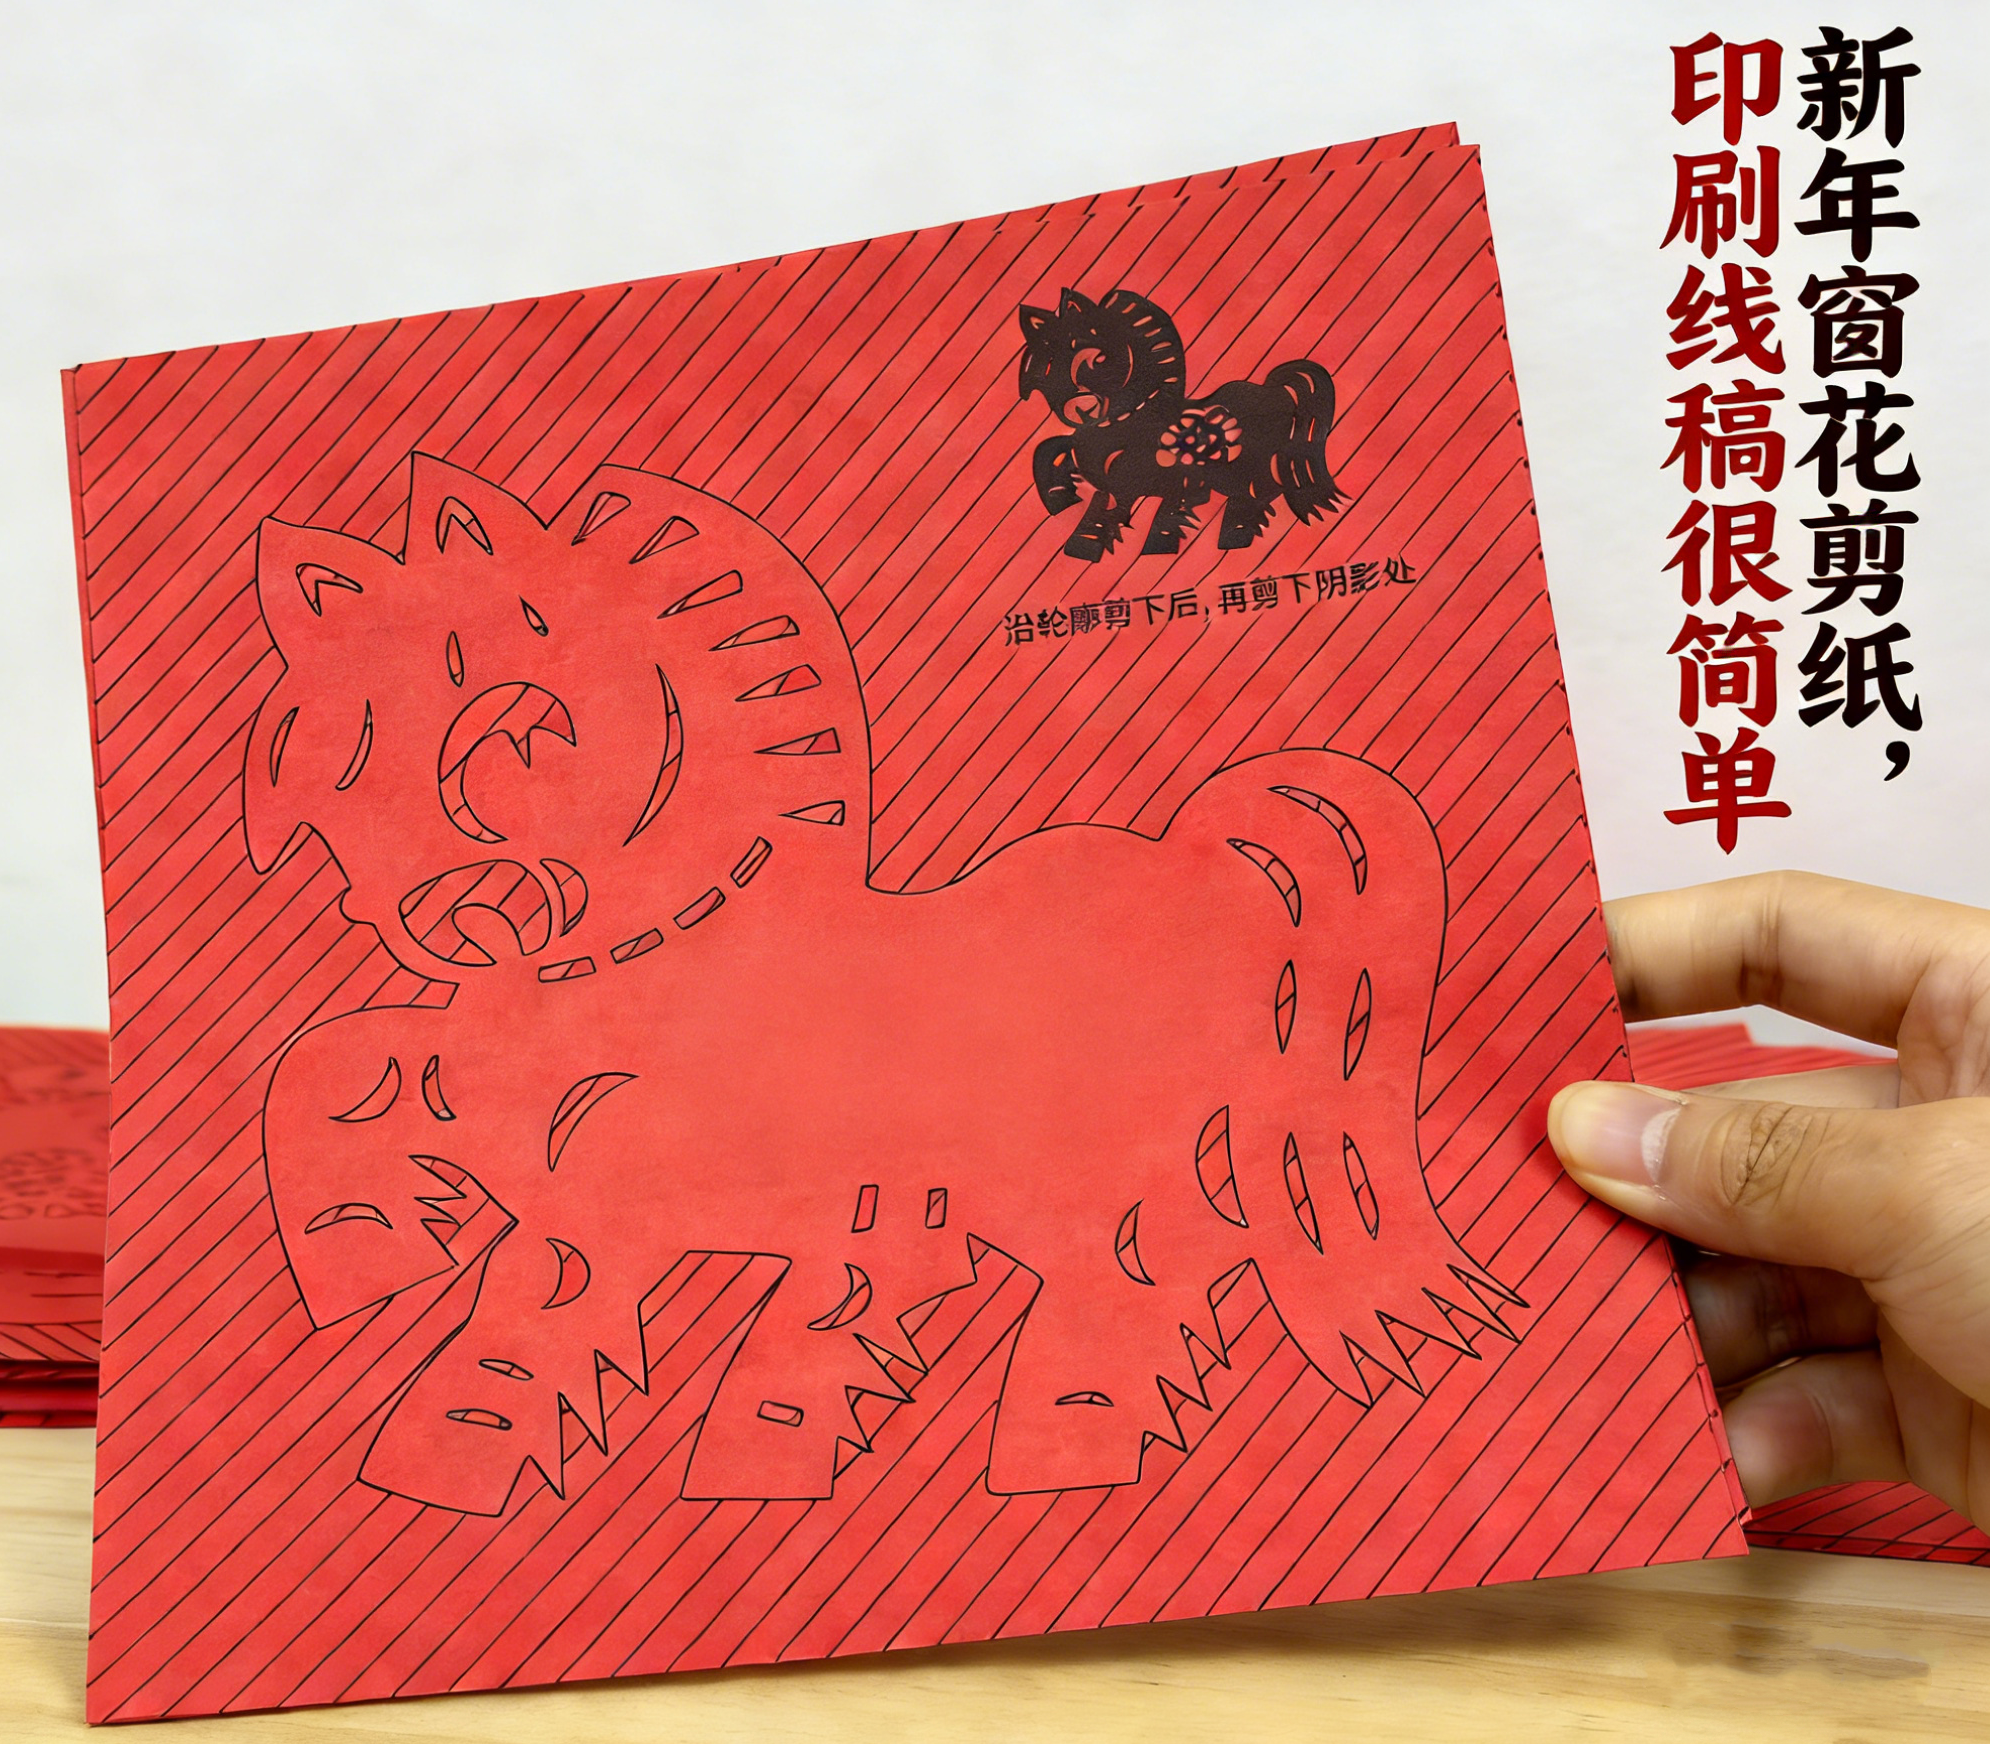 新年窗花剪纸，
印刷线稿很简单
沿轮廓剪下后，再剪下阴影处